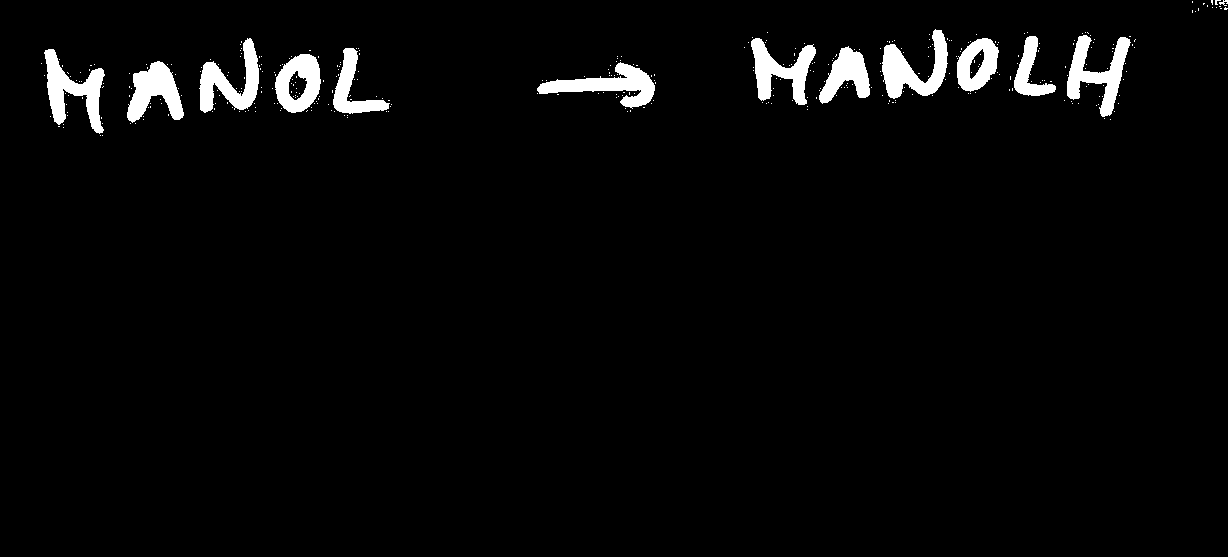 MANOL → MANOLH